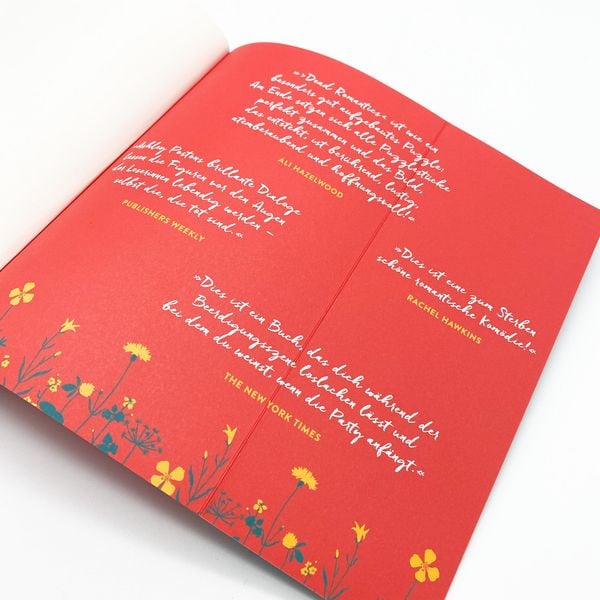 »›Dead Romantics‹ ist wie ein
besonders gut aufgebautes Puzzle:
Am Ende setzen sich alle Puzzlestücke
perfekt zusammen und das Bild,
das entsteht, ist berührend, lustig,
atemberaubend und hoffnungsvoll!«
ALI HAZELWOOD
Ashley Postons brillante Dialoge
lassen die Figuren vor den Augen
der Leserinnen lebendig werden –
selbst die, die tot sind.«
PUBLISHERS WEEKLY
»Dies ist eine zum Sterben
schöne romantische Komödie!«
RACHEL HAWKINS
»Dies ist ein Buch, das dich während der
Beerdigungsszene loslachen lässt und
bei dem du weinst, wenn die Party anfängt.«
THE NEW YORK TIMES